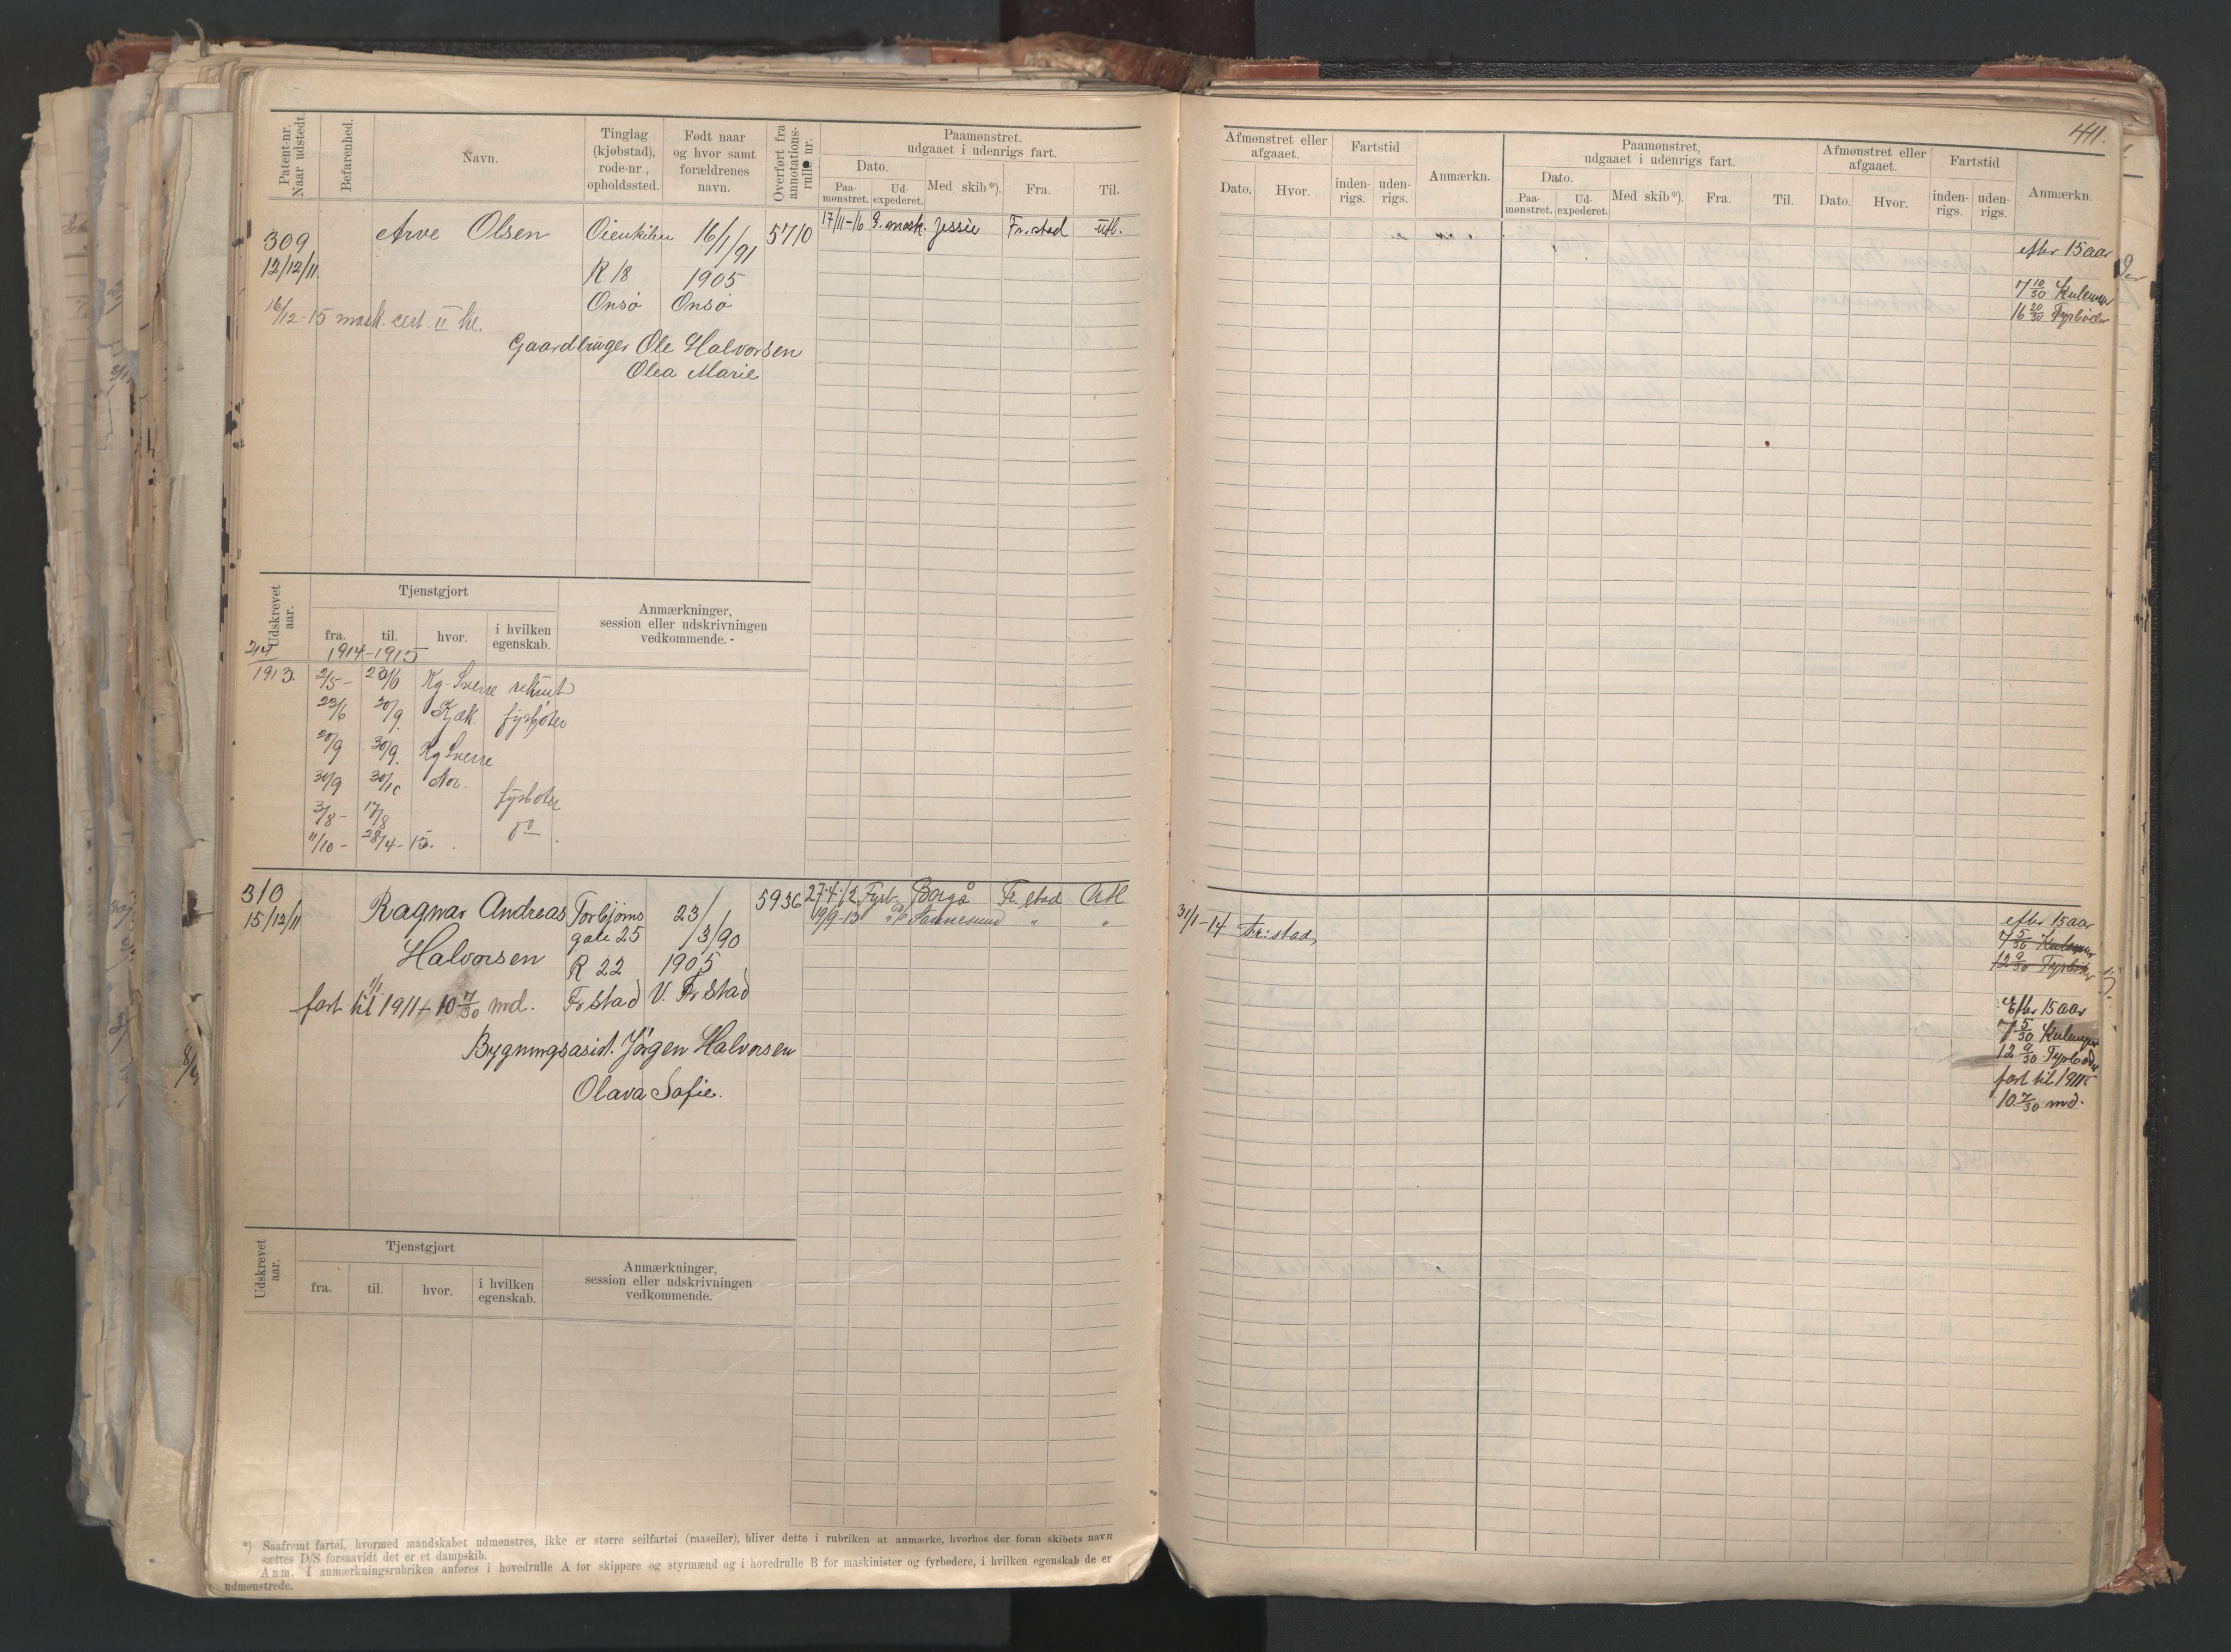 411.
Patent-nr. Naar udstedt.
Befarenhed.
Navn.
Tinglag (kjøbstad), rode-nr., opholdssted.
Født naar og hvor samt forældrenes navn.
Overført fra annotations-rulle nr.
Paamønstret, udgaaet i udenrigs fart.
Dato.
Paa-mønstret.
Ud-expederet.
Med skib*).
Fra.
Til.
309 Arve Olsen 16/1/91 5710 17/11-16 2. mask. Jessie Fr.stad Utl.
12/12/11 R 18 1905
Onsø Onsø
16/12-15 mask. cert. II kl.
Gaardbruger Ole Halvorsen
Olea Marie
Udskrevet aar.
Tjenstgjort
fra.
til.
hvor.
i hvilken egenskab.
Anmærkninger, session eller udskrivningen vedkommende.
1914-1915
1913. 2/5- 23/6 Kg Sverre rekrut
23/6 30/9. Kjæk. fyrbøter
20/9 30/9. Kg Sverre
30/9 30/10 Nor.
3/8- 17/8 fyrbøter
11/10- 28/4-15. do
310 Ragnar Andreas Torbjørns 23/ 5936 27.4.12 Fyrb. Borgå Fr.stad Utl
15/12/11 gate 25 /3/90 19/9-13 " Sannesund " "
Halvorsen R 22 1905
fart til 1/1 1911 + 10 7/30 md. Frstad V. Frstad
Bygningsasist. Jørgen Halvorsen
Olava Sofie.
Udskrevet aar.
Tjenstgjort
fra.
til.
hvor.
i hvilken egenskab.
Anmærkninger, session eller udskrivningen vedkommende.
*) Saafremt fartøi, hvormed mandskabet udmønstres, ikke er større seilfartøi (raaseiler), bliver dette i rubriken at anmærke, hvorhos der foran skibets navn
sættes D/S forsaavidt det er et dampskib.
Anm. I anmærkningsrubriken anføres i hovedrulle A for skippere og styrmænd og i hovedrulle B for maskinister og fyrbødere, i hvilken egenskab de er
udmønstrede.
Afmønstret eller afgaaet.
Dato.
Hvor.
Fartstid
inden-rigs.
uden-rigs.
Anmærkn.
Paamønstret, udgaaet i udenrigs fart.
Dato.
Paa-mønstret.
Ud-expederet.
Med skib*).
Fra.
Til.
Afmønstret eller afgaaet.
Dato.
Hvor.
Fartstid
inden-rigs.
uden-rigs.
Anmærkn.
efter 15 aar
7 10/30 Kulemper
16 20/30 Fyrbøder
31/1-14 Fr:stad
efter 15 aar
7 5/30 Kulemper
12 9/30 Fyrbøder
Efter 15 aar
7 5/30 Kulemper
12 9/30 Fyrbøder
fart til 1911
10 7/30 md.